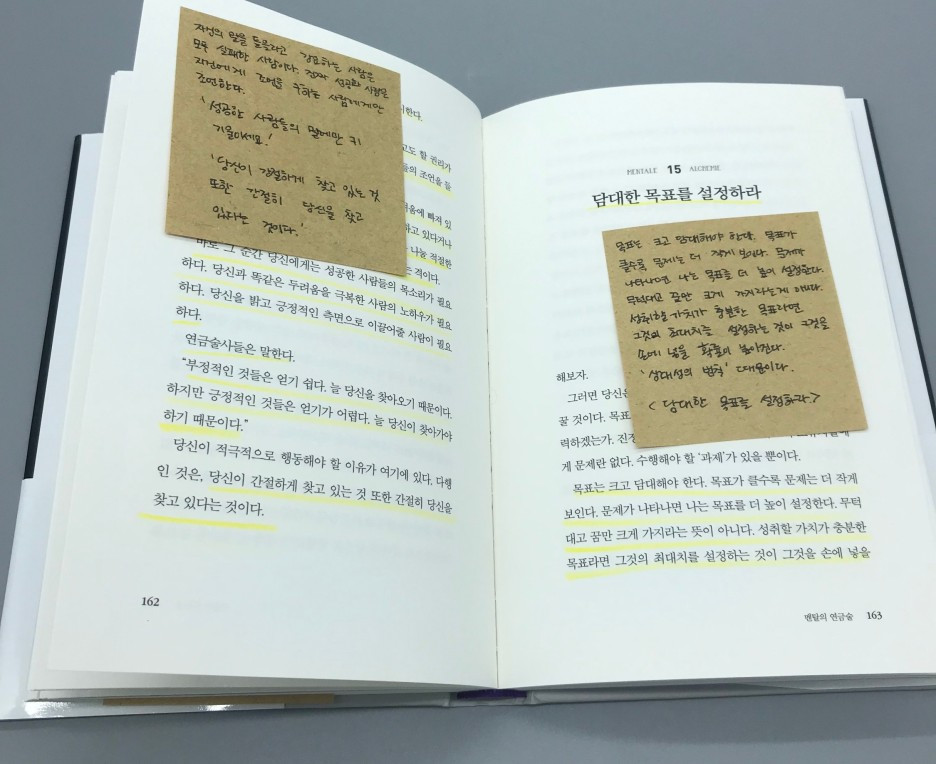 자신의 말을 들으라고 강요하는 사람은
모두 실패한 사람이다. 진짜 성공한 사람은
자건에게 조언을 구하는 사람에게만
조언한다.
'성공한 사람들의 말에만 귀
기울이세요!
'당신이 간절하게 찾고 있는 것
또한 간절히 당신을 찾고
있다는 것이다.'
이한다.
고도 할 권리가
들의 조언을 들
려움에 빠져 있
하고 있다거나
나눌 적절한
는 격이다.
바로 그 순간 당신에게는 성공한 사람들의 목소리가 필요
하다. 당신과 똑같은 두려움을 극복한 사람의 노하우가 필요
하다. 당신을 밝고 긍정적인 측면으로 이끌어줄 사람이 필요
하다.
연금술사들은 말한다.
"부정적인 것들은 얻기 쉽다. 늘 당신을 찾아오기 때문이다.
하지만 긍정적인 것들은 얻기가 어렵다. 늘 당신이 찾아가야
하기 때문이다."
당신이 적극적으로 행동해야 할 이유가 여기에 있다. 다행
인 것은, 당신이 간절하게 찾고 있는 것 또한 간절히 당신을
찾고 있다는 것이다.
162
MENTALE 15 ALCHEMIE
담대한 목표를 설정하라
목표는 크고 담대해야 한다. 목표가
클수록 문제는 더 작게 보인다. 문제가
나타나면 나는 목표를 더 높이 설정한다.
무턱대고 꿈만 크게 가지라는게 아니다.
성취할 가치가 충분한 목표라면
그것의 최대치를 설정하는 것이 그것을
손에 넣을 확률이 높아진다.
'상대성의 법칙' 때문이다.
<담대한 목표를 설정하라>
해보자.
그러면 당신은
꿀 것이다. 목표
력하겠는가. 진정
게 문제란 없다. 수행해야 할 '과제'가 있을 뿐이다.
목표는 크고 담대해야 한다. 목표가 클수록 문제는 더 작게
보인다. 문제가 나타나면 나는 목표를 더 높이 설정한다. 무턱
대고 꿈만 크게 가지라는 뜻이 아니다. 성취할 가치가 충분한
목표라면 그것의 최대치를 설정하는 것이 그것을 손에 넣을
멘탈의 연금술 163